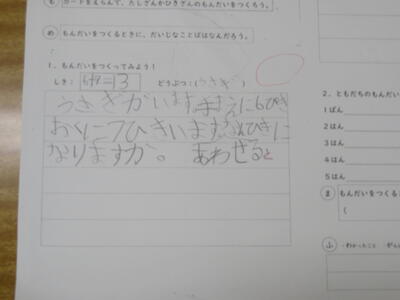 も カードをえらんで、たしざんかひきざんのもんだいをつくろう。
め もんだいをつくるときに、だいじなことばはなんだろう。
1．もんだいをつくってみよう！
しき：6+7=13 どうぶつ：(うさぎ)
うさぎがいます。まえに6ぴき
おくに7ひきいます。なんびきに
なりますか。 あわせると
2．ともだちのもんだい
1ばん
2ばん
3ばん
4ばん
5ばん
ま もんだいをつくる
(
ふ (わかったこと